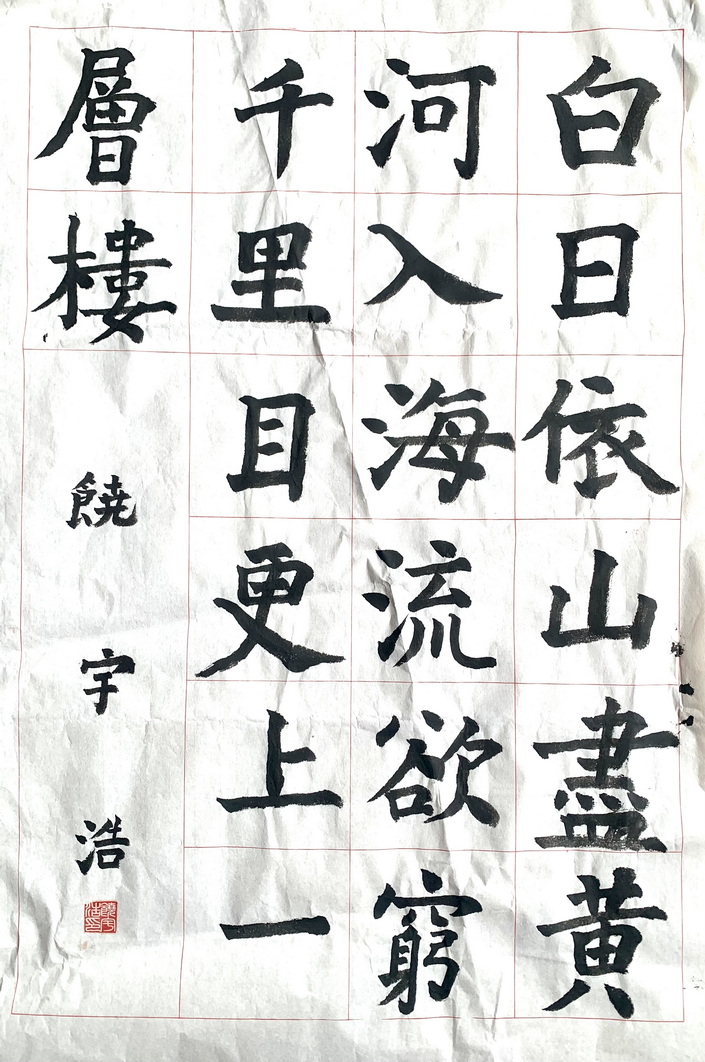 白日依山盡黃
河入海流欲窮
千里目更上一
層樓
饒宇浩
饒宇浩印